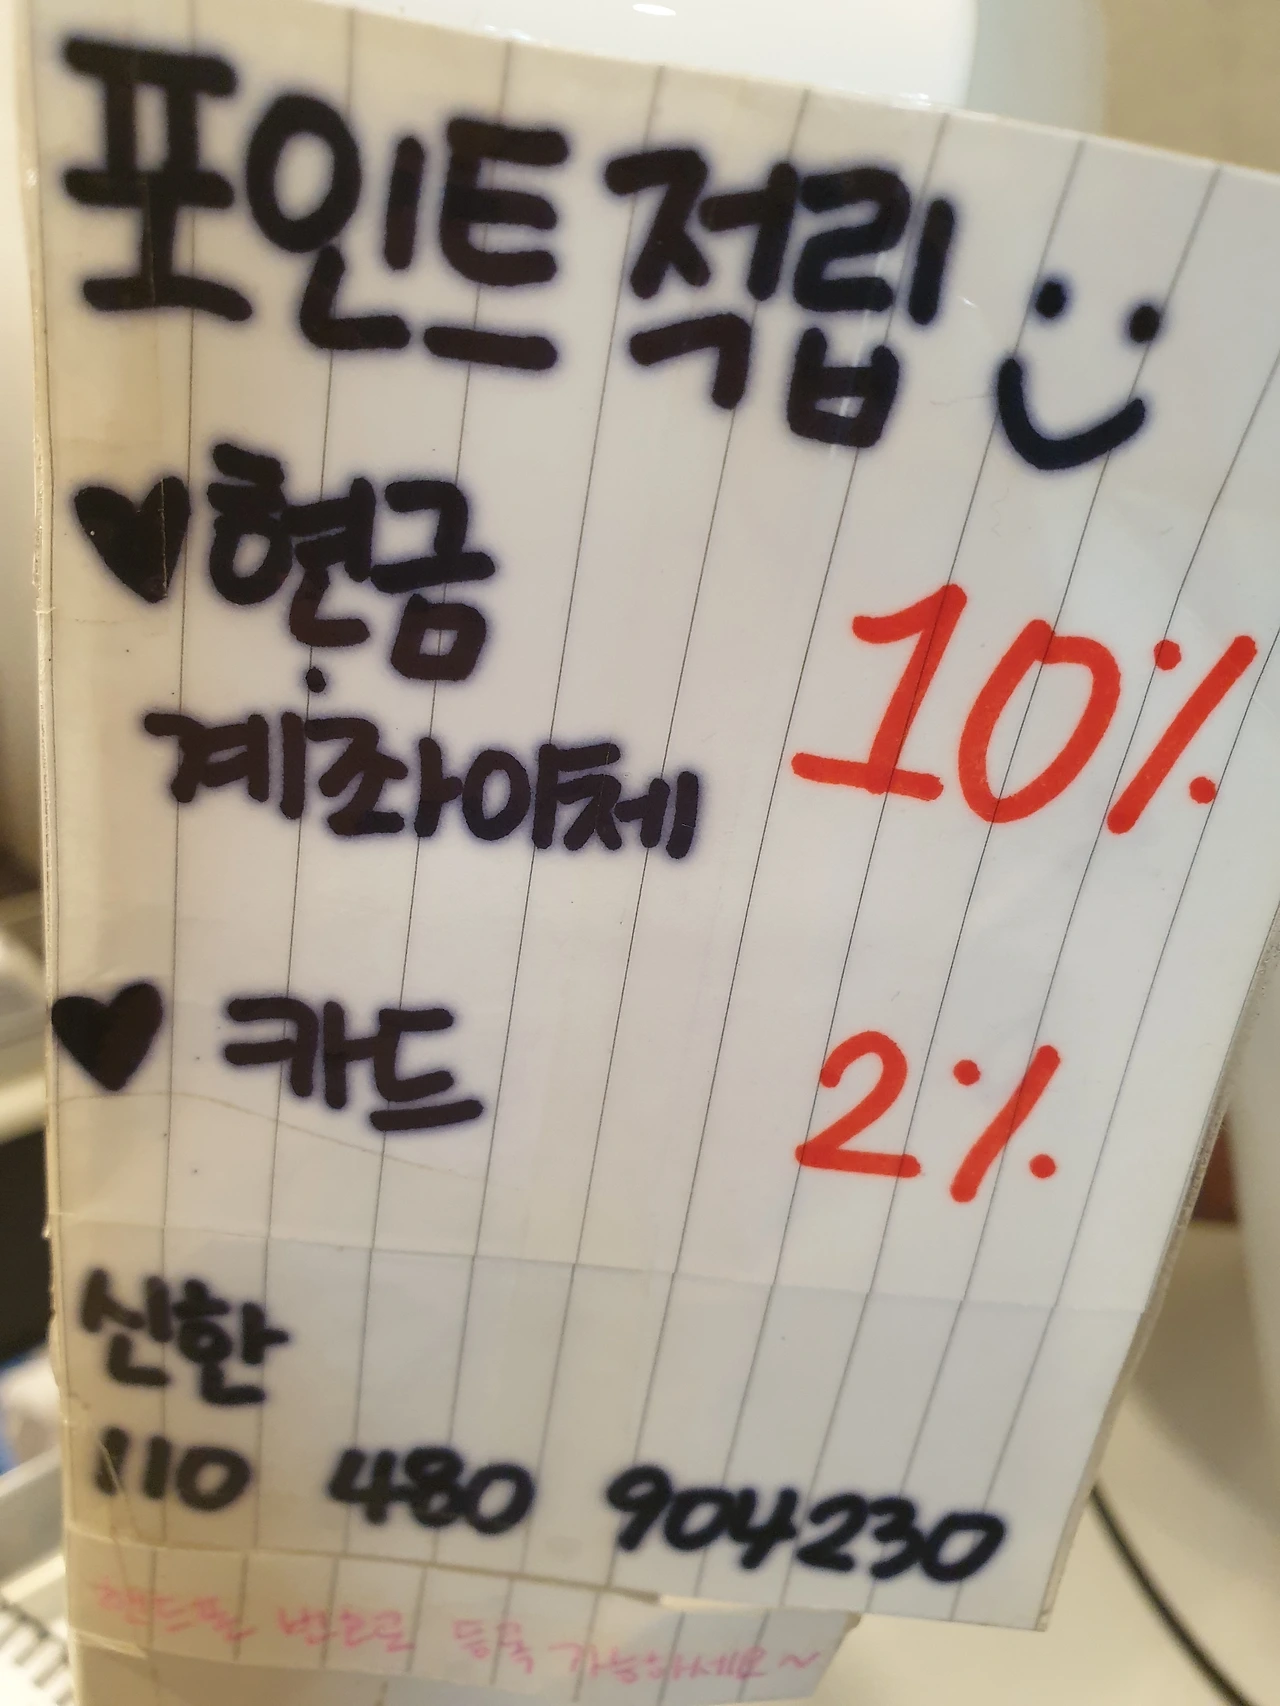 포인트 적립
현금
계좌이체 10%
카드 2%
신한
110 480 904230
핸드폰 번호로 등록 가능하세요~